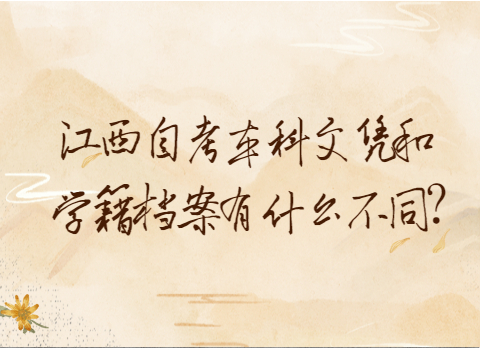 江西自考本科文凭和
学籍档案有什么不同?